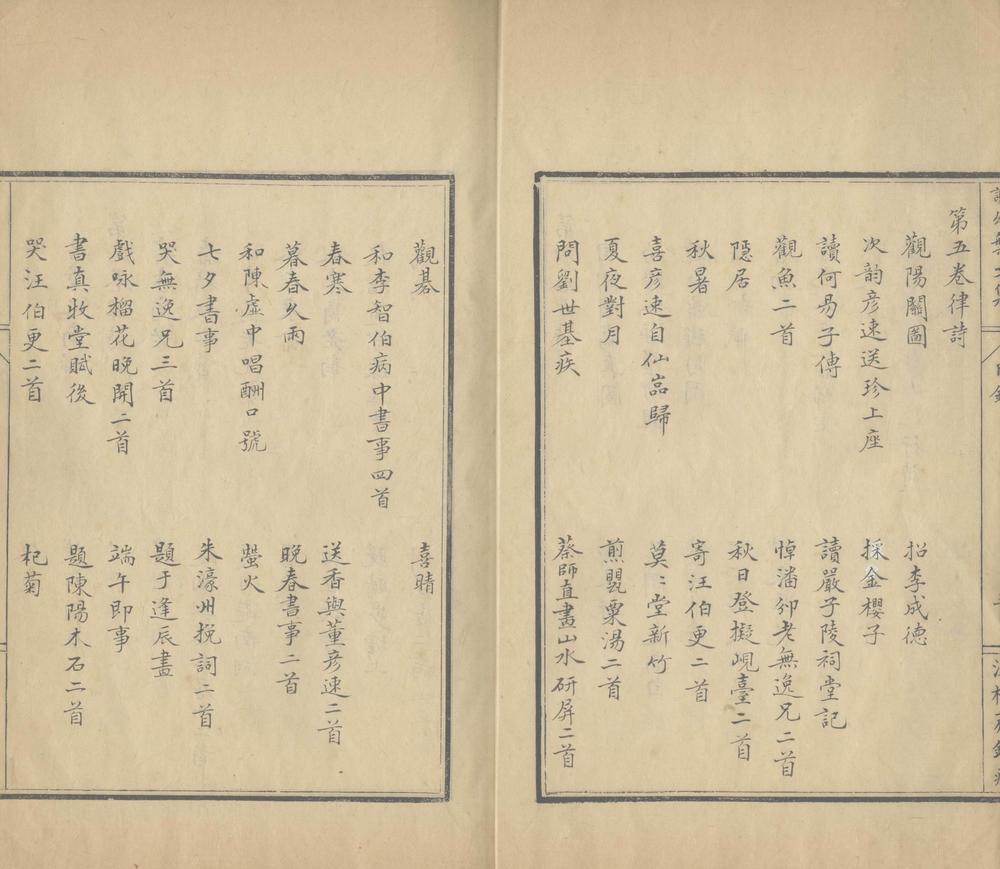 第五卷律詩
觀陽關圖　招李成德
次韵彦速送珍上座　採金櫻子
讀何易子傳　讀嚴子陵祠堂記
觀魚二首　悼潘邠老無逸兄二首
隠居　秋日登擬峴臺二首
秋暑　寄汪伯更二首
喜彦速自仙嵓歸　莫〻堂新竹
夏夜對月　煎甖粟湯二首
問劉世基疾　蔡師直畫山水研屏二首
觀碁　喜晴
和李智伯病中書事四首
春寒　送香與董彦速二首
暮春久雨　晚春書事二首
和陳虛中唱酬口號　螢火
七夕書事　朱濠州挽詞二首
哭無逸兄三首　題于逢辰畫
戲咏榴花晚開二首　端午即事
書真牧堂賦後　題陳陽木石二首
哭汪伯更二首　杞菊